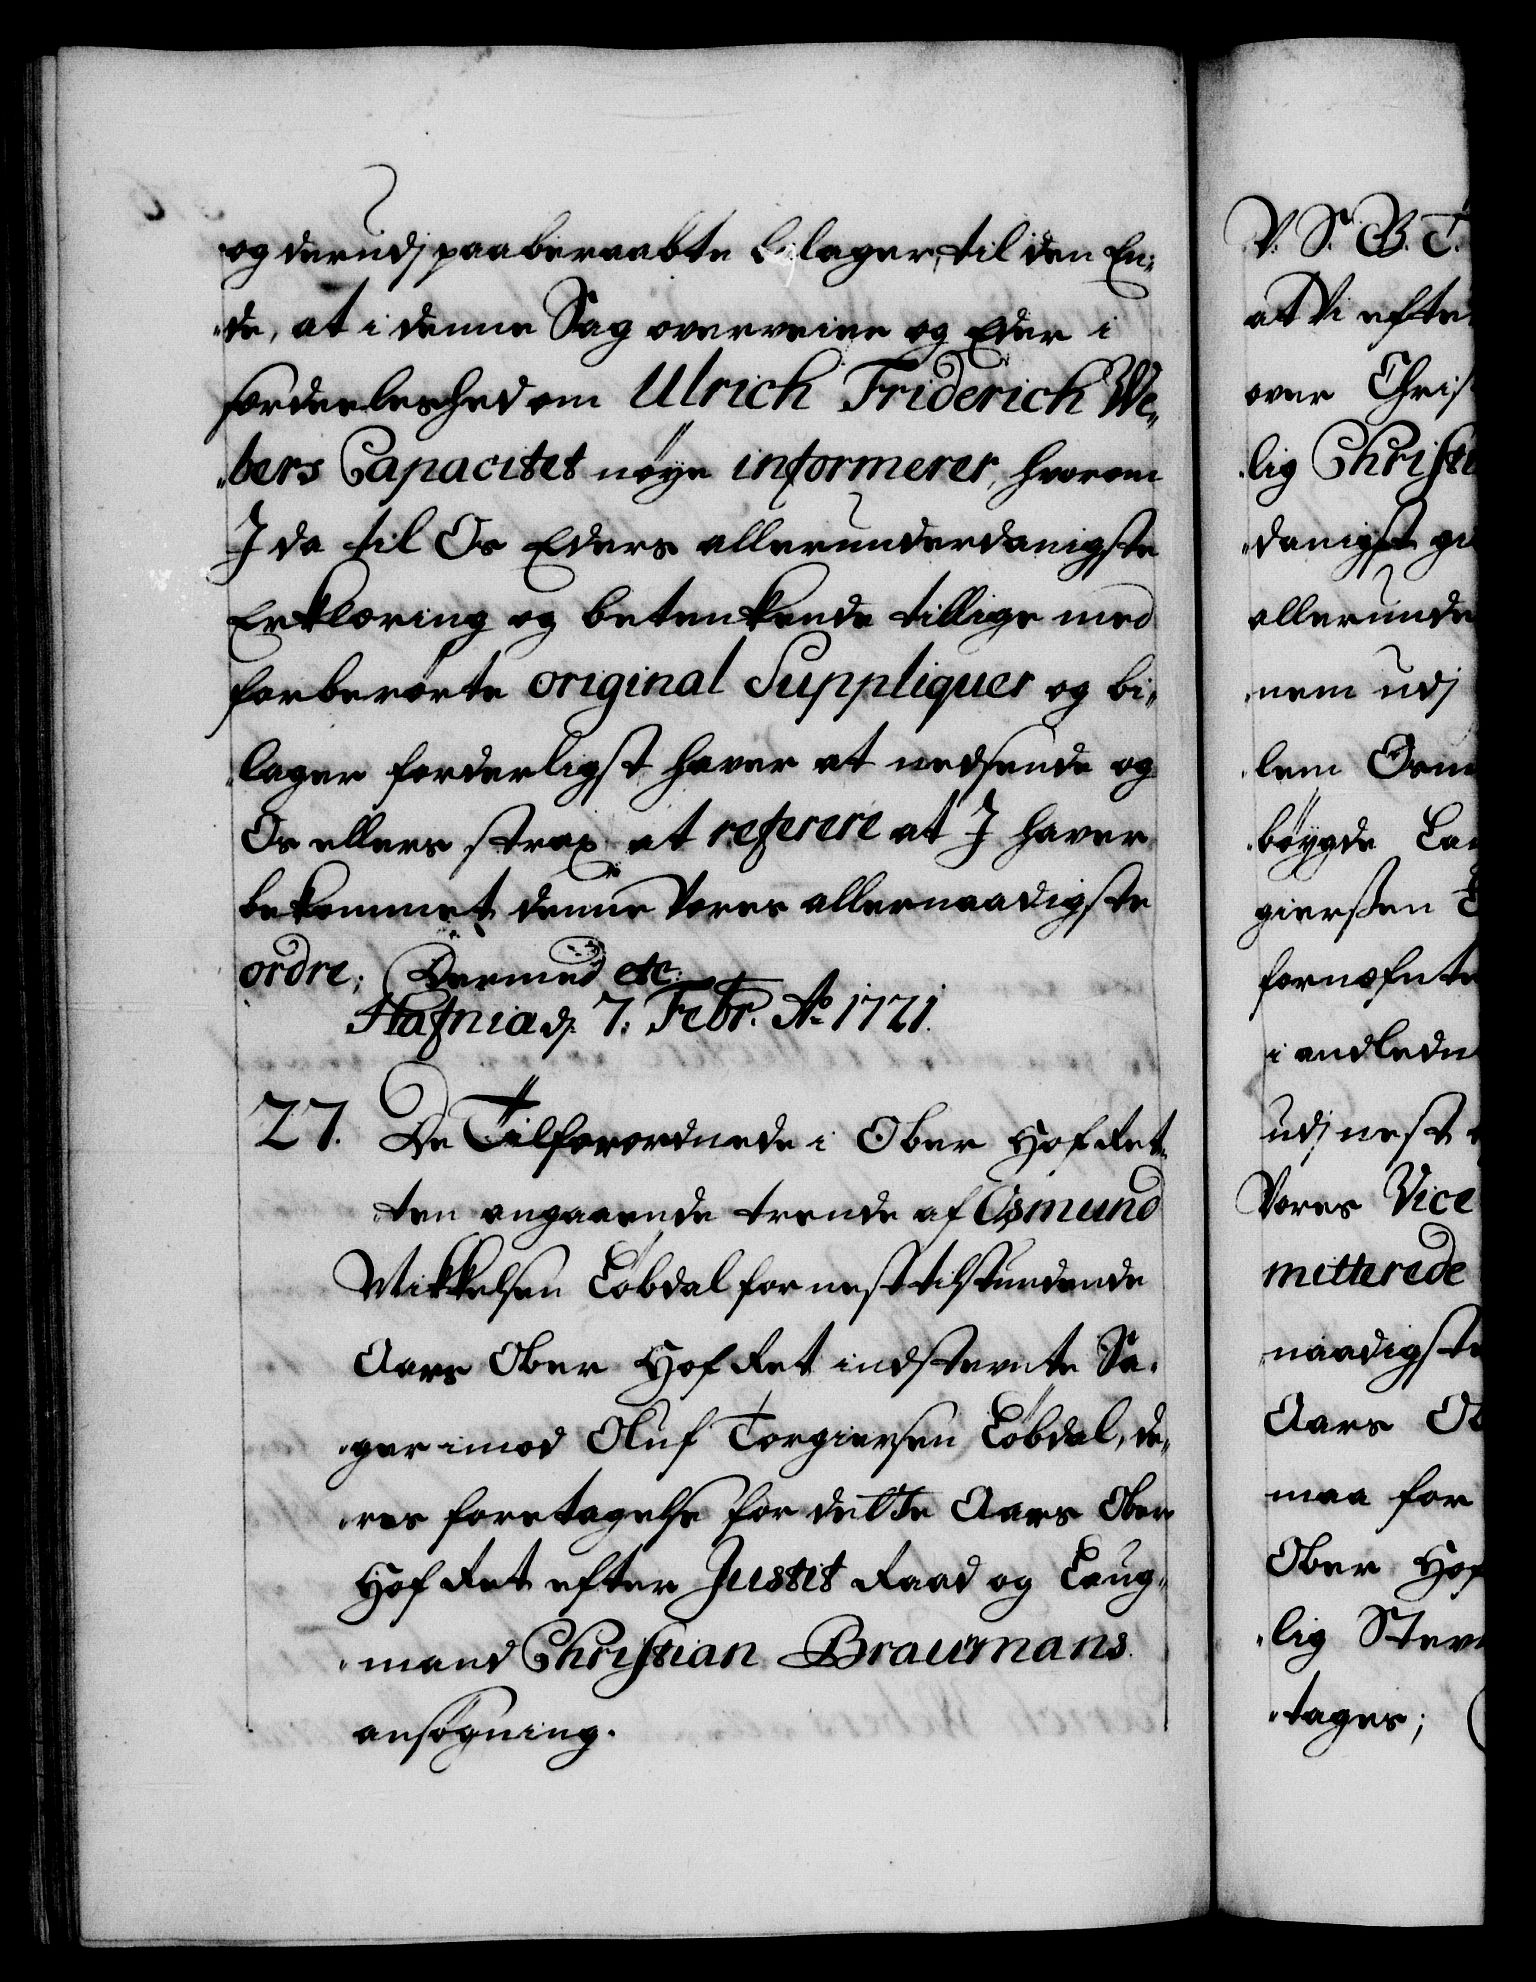 og derudj paaberaabte bilager, til den En-
de, at i denne Sag overveier og Eder i
særdeeleshed om Ulrich Friderich We-
bers Capacitet nøye informerer, hvorom
I da til Os Eders allerunderdanigste
Erklæring og betenkende tillige med
forberørte original Suppliquer og bi-
lager forderligst haver at nedsende og
Os ellers strax at referere at I haver
bekommet denne Vores allernaadigste
ordre; Dermed etc.
Hafnia d. 7. Febr. Ao 1721.
27. De Tilforordnede i Ober Hof Ret-
ten angaaende trende af Osmund
Mikkelsen Løbdal for nest tilstundende
Aars Ober Hof Ret indstevnte Sa-
ger imod Oluf Torgiersen Løbdal, de-
res foretagelse for dette Aars Ober
Hof Ret efter Justit Raad og Laug-
mand Christian Braumans
ansøgning.
V. S. B. T.
at Vi efter
over Chris
lig Christi
danigst gi
allerunde
nem udj
lem Osm
bøygde La
gierssen
fornefnte
i andledn
udj nest
Vores Vice
mitterede
naadigste
Aars Ob
maa for
Ober Hof
lig Stev
tages;